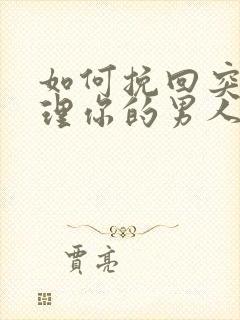 如何挽回突
理你的男人
贾亮